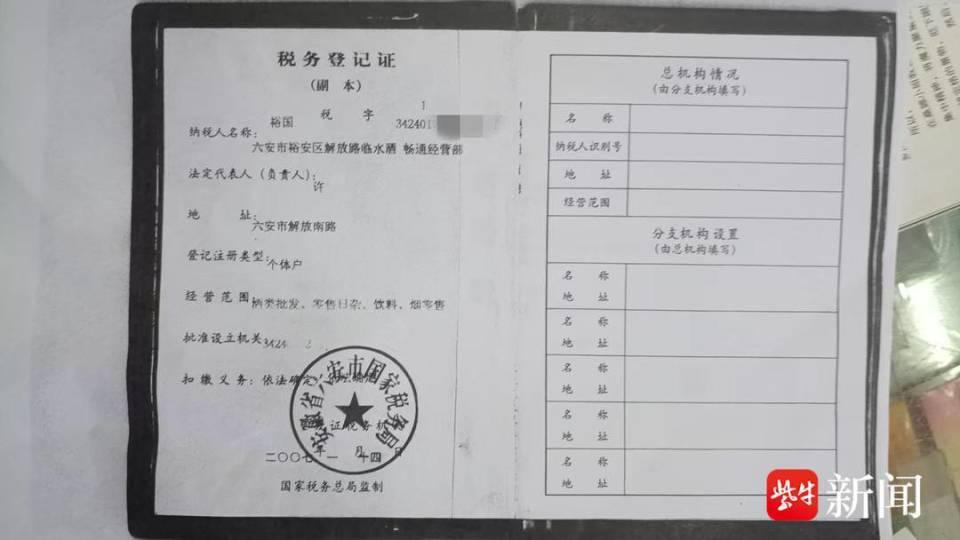 税务登记证
(副 本)
裕国 税 字 342401 1
纳税人名称:
六安市裕安区解放路临水酒 畅通经营部
法定代表人(负责人):
许
地 址:
六安市解放南路
登记注册类型:
个体户
经营范围
酒类批发、零售日杂、饮料、烟零售
批准设立机关
3424
扣缴义务:依法确定
安徽省六安市国家税务局
证税务机
二〇〇七 年 一 月 十四 日
国家税务总局监制
总机构情况
(由分支机构填写)
名 称
纳税人识别号
地 址
经营范围
分支机构设置
(由总机构填写)
名 称
地 址
名 称
地 址
名 称
地 址
名 称
地 址
名 称
地 址
紫牛新闻